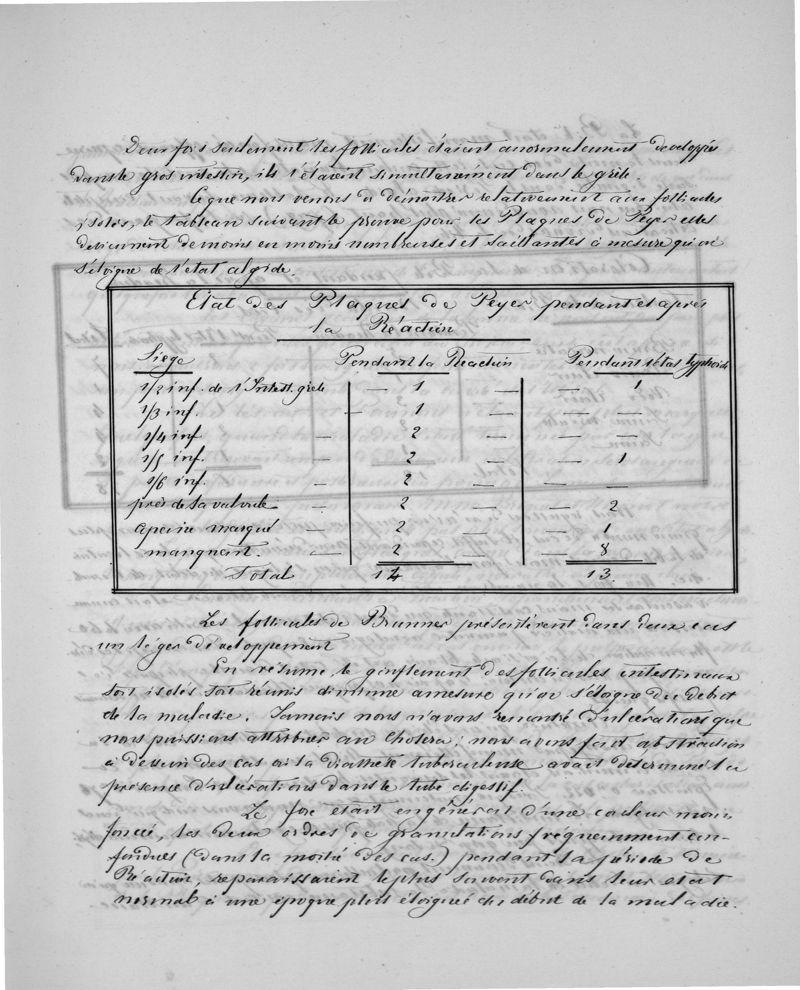 Deux fois seulement les follicules étaient anormalement développés
dans le gros intestin, ils l'étaient simultanément dans le grêle.
Ce que nous venons de démontrer relativement aux follicules
isolés, le tableau suivant le prouve pour les Plaques de Peyer elles
deviennent de moins en moins nombreuses et saillantes à mesure qu'on
s'éloigne de l'état algide.
Etat des Plaques de Peyer pendant et après
la Réaction
Siège Pendant la Réaction Pendant l'état typhoïde
1/2 inf. de l'Intest. grêle — 1 — — 1
1/3 inf. — 1 — — —
1/4 inf — 2 — — —
1/5 inf. — 2 — — 1
1/6 inf. — 2 — — —
près de la valvule — 2 — 2
à peine marqué — 2 — — 1
manquant. — 2 — — 8
Total 14 13
Les follicules de Brunner présentèrent dans deux cas
un léger développement
En résumé, le gonflement des follicules intestinaux
soit isolés soit réunis diminue à mesure qu'on s'éloigne du début
de la maladie. Jamais nous n'avons rencontré d'ulcérations que
nous puissions attribuer au Cholera; nous avons fait abstraction
à dessein des cas où la diathèse tuberculeuse avait déterminé la
présence d'ulcérations dans le tube digestif.
Le foie était en général d'une couleur moins
foncée, les deux ordres de granulations fréquemment con-
fondues (dans la moitié des cas.) pendant la période de
Réaction, reparaissaient le plus souvent dans leur état
normal à une époque plus éloignée du début de la maladie.